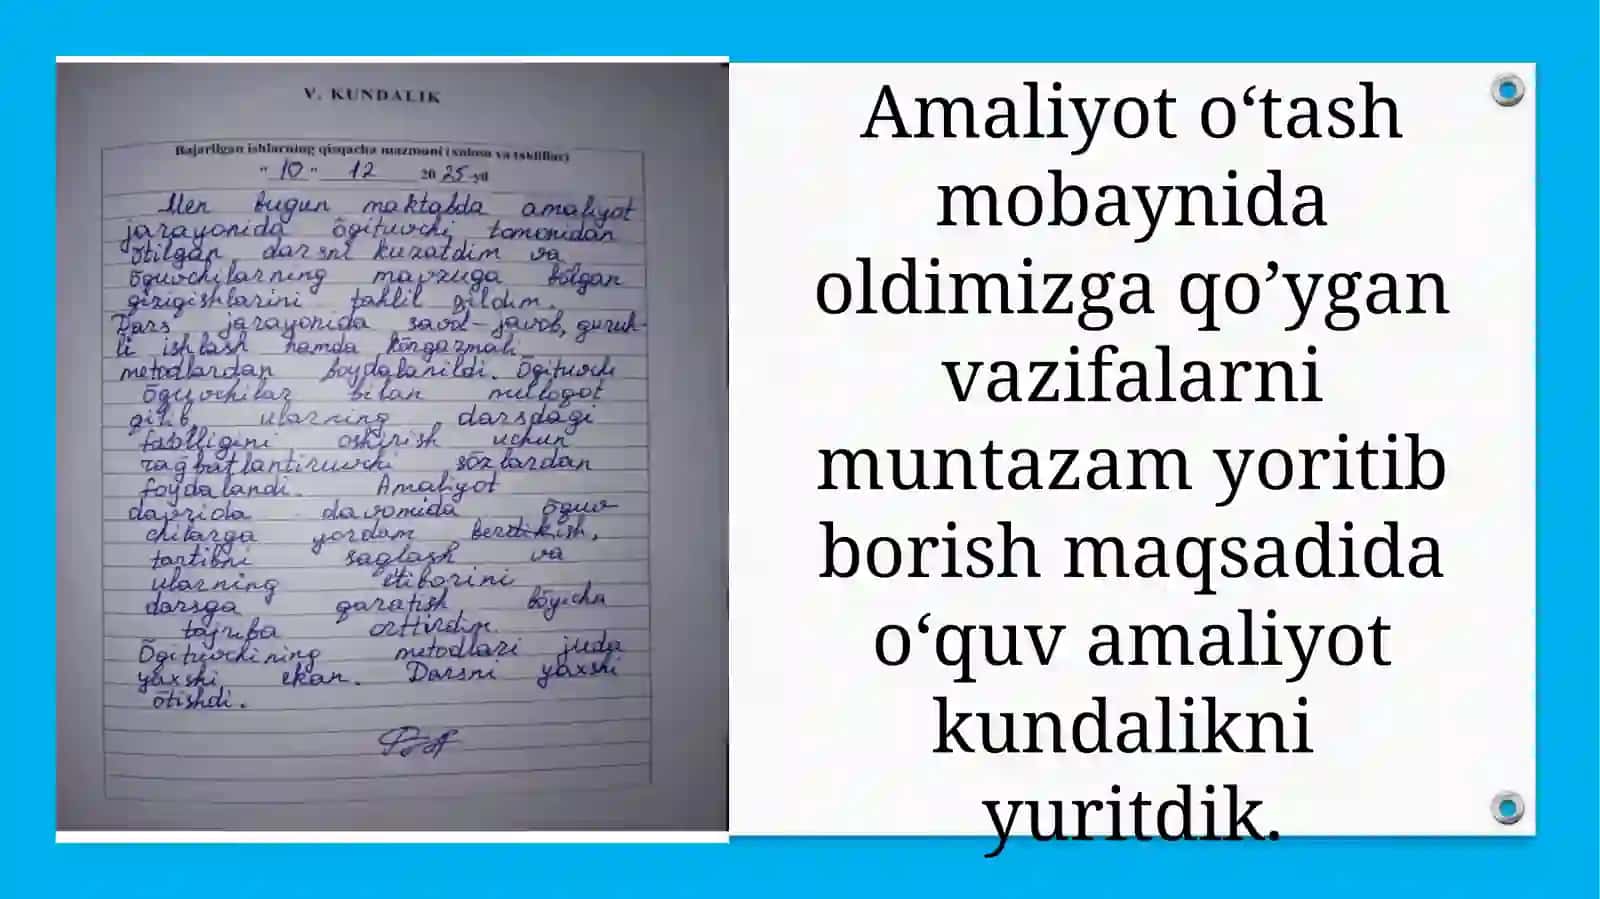 V. KUNDALIK
Bajarilgan ishlarning qisqacha mazmuni (xulosa va takliflar)
"10" 12 2025 yil
Men bugun maktabda amaliyot
jarayonida ōgituvchi tomonidan
ōtilgan darsni kuzatdim va
ōguvchilarning mavzuga bōlgan
qiziqishlarini tahlil qildim.
Dars jarayonida savol-javob, guruh-
li ishlash hamda kōrgazmali
metodlardan foydalanildi. Ōgituvchi
ōguvchilar bilan muloqot
qilib ularning darsdagi
faolligini oshirish uchun
rag'batlantiruvchi sōzlardan
foydalandi. Amaliyot
davrida davomida ōguv-
chilarga yordam berish,
tartibni saqlash va
ularning e'tiborini
darsga qaratish bōyicha
tajriba orttirdim.
Ōgituvchining metodlari juda
yaxshi ekan. Darsni yaxshi
ōtishdi.
Amaliyot o‘tash
mobaynida
oldimizga qo’ygan
vazifalarni
muntazam yoritib
borish maqsadida
o‘quv amaliyot
kundalikni
yuritdik.